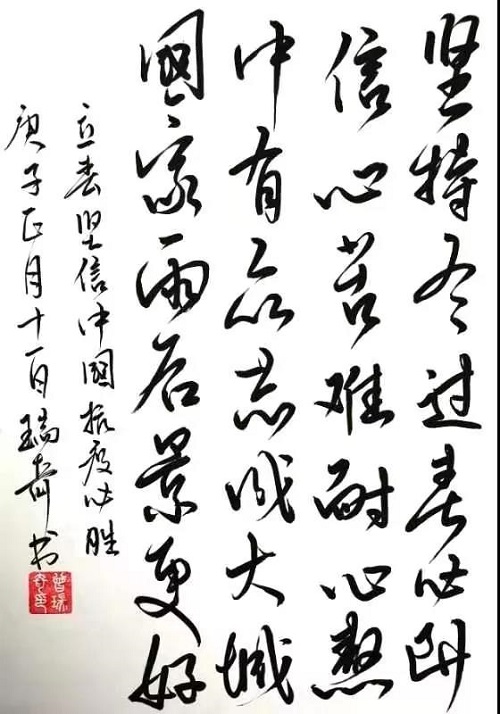 坚持冬过春必
信心苦难耐心熬
中有众志成大城
國家雨后景更好
立春坚信中國抗疫必胜
庚子正月十一日瑞奇书